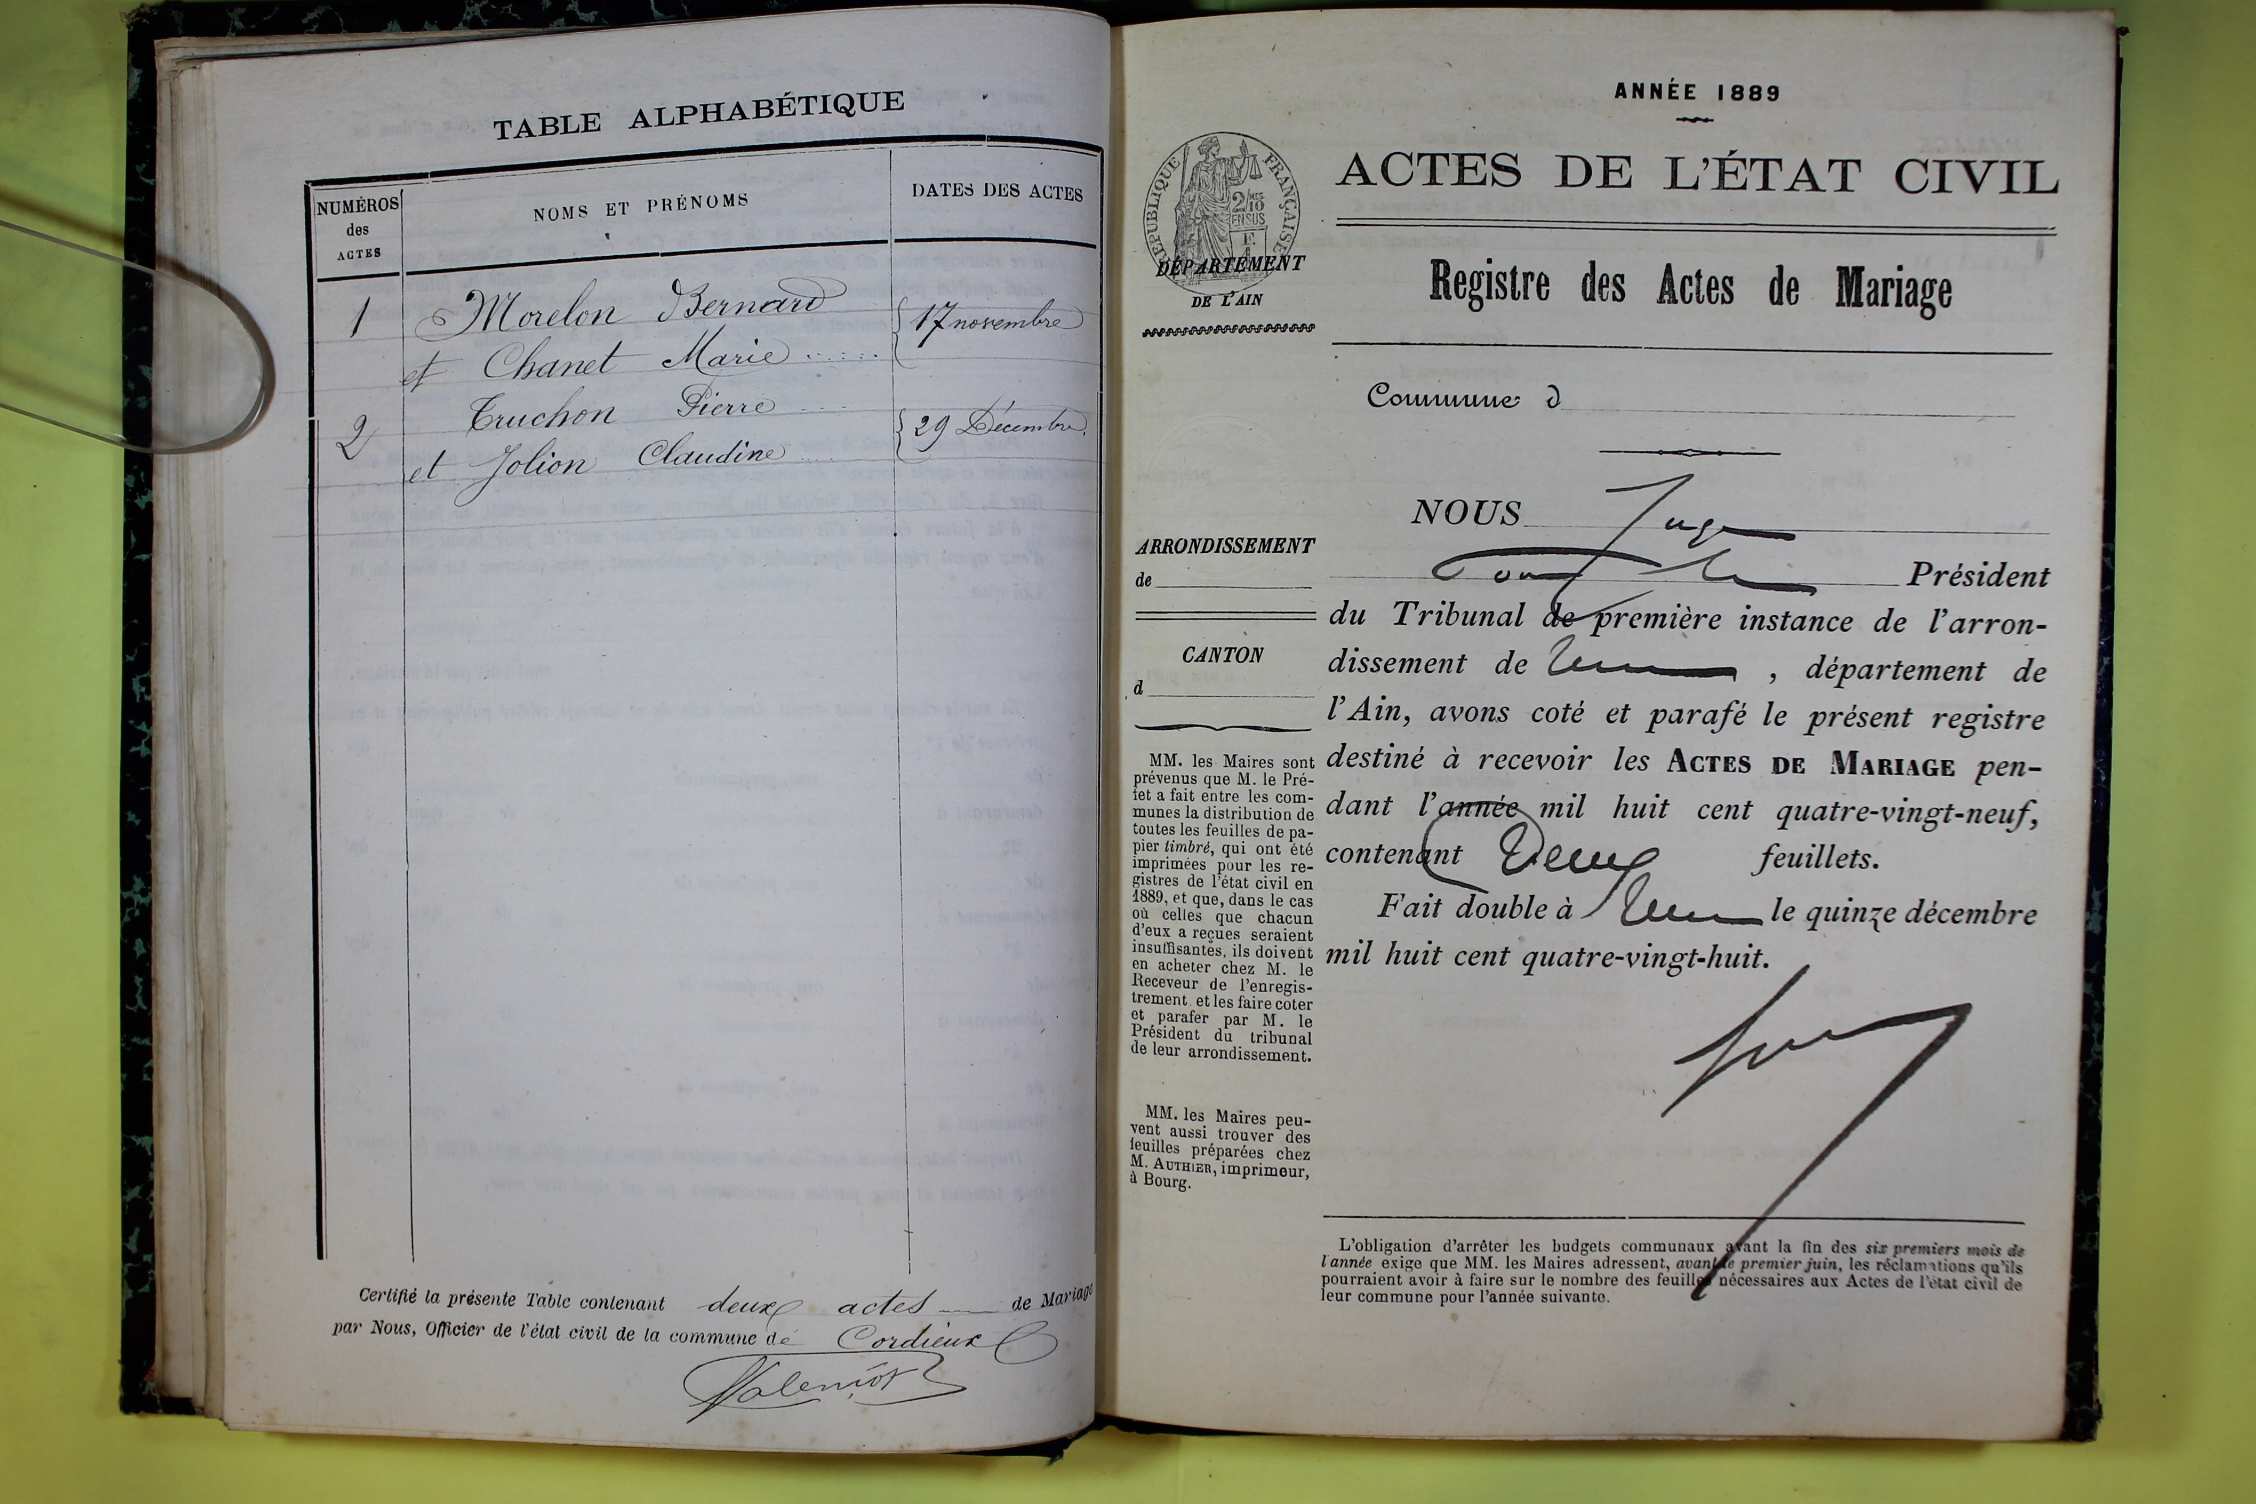 TABLE ALPHABÉTIQUE
NUMÉROS
des
ACTES
NOMS ET PRÉNOMS
DATES DES ACTES
1 Morelon Bernard
et Chanet Marie
17 novembre
2 Truchon Pierre
et Jolion Claudine
29 Décembre
Certifié la présente Table contenant deux actes de Mariage
par Nous, Officier de l'état civil de la commune de Cordieux
ANNÉE 1889
RÉPUBLIQUE FRANÇAISE
2/10
EN SUS
DÉPARTEMENT
DE L'AIN
ACTES DE L'ÉTAT CIVIL
Registre des Actes de Mariage
Commune d
ARRONDISSEMENT
de
CANTON
d
MM. les Maires sont
prévenus que M. le Pré-
fet a fait entre les com-
munes la distribution de
toutes les feuilles de pa-
pier timbré, qui ont été
imprimées pour les re-
gistres de l'état civil en
1889, et que, dans le cas
où celles que chacun
d'eux a reçues seraient
insuffisantes, ils doivent
en acheter chez M. le
Receveur de l'enregis-
trement et les faire coter
et parafer par M. le
Président du tribunal
de leur arrondissement.
MM. les Maires peu-
vent aussi trouver des
feuilles préparées chez
M. AUTHIER, imprimeur,
à Bourg.
NOUS Juge
Président
du Tribunal de première instance de l'arron-
dissement de , département de
l'Ain, avons coté et parafé le présent registre
destiné à recevoir les ACTES DE MARIAGE pen-
dant l'année mil huit cent quatre-vingt-neuf,
contenant Deux feuillets.
Fait double à le quinze décembre
mil huit cent quatre-vingt-huit.
L'obligation d'arrêter les budgets communaux avant la fin des six premiers mois de
l'année exige que MM. les Maires adressent, avant le premier juin, les réclamations qu'ils
pourraient avoir à faire sur le nombre des feuilles nécessaires aux Actes de l'état civil de
leur commune pour l'année suivante.